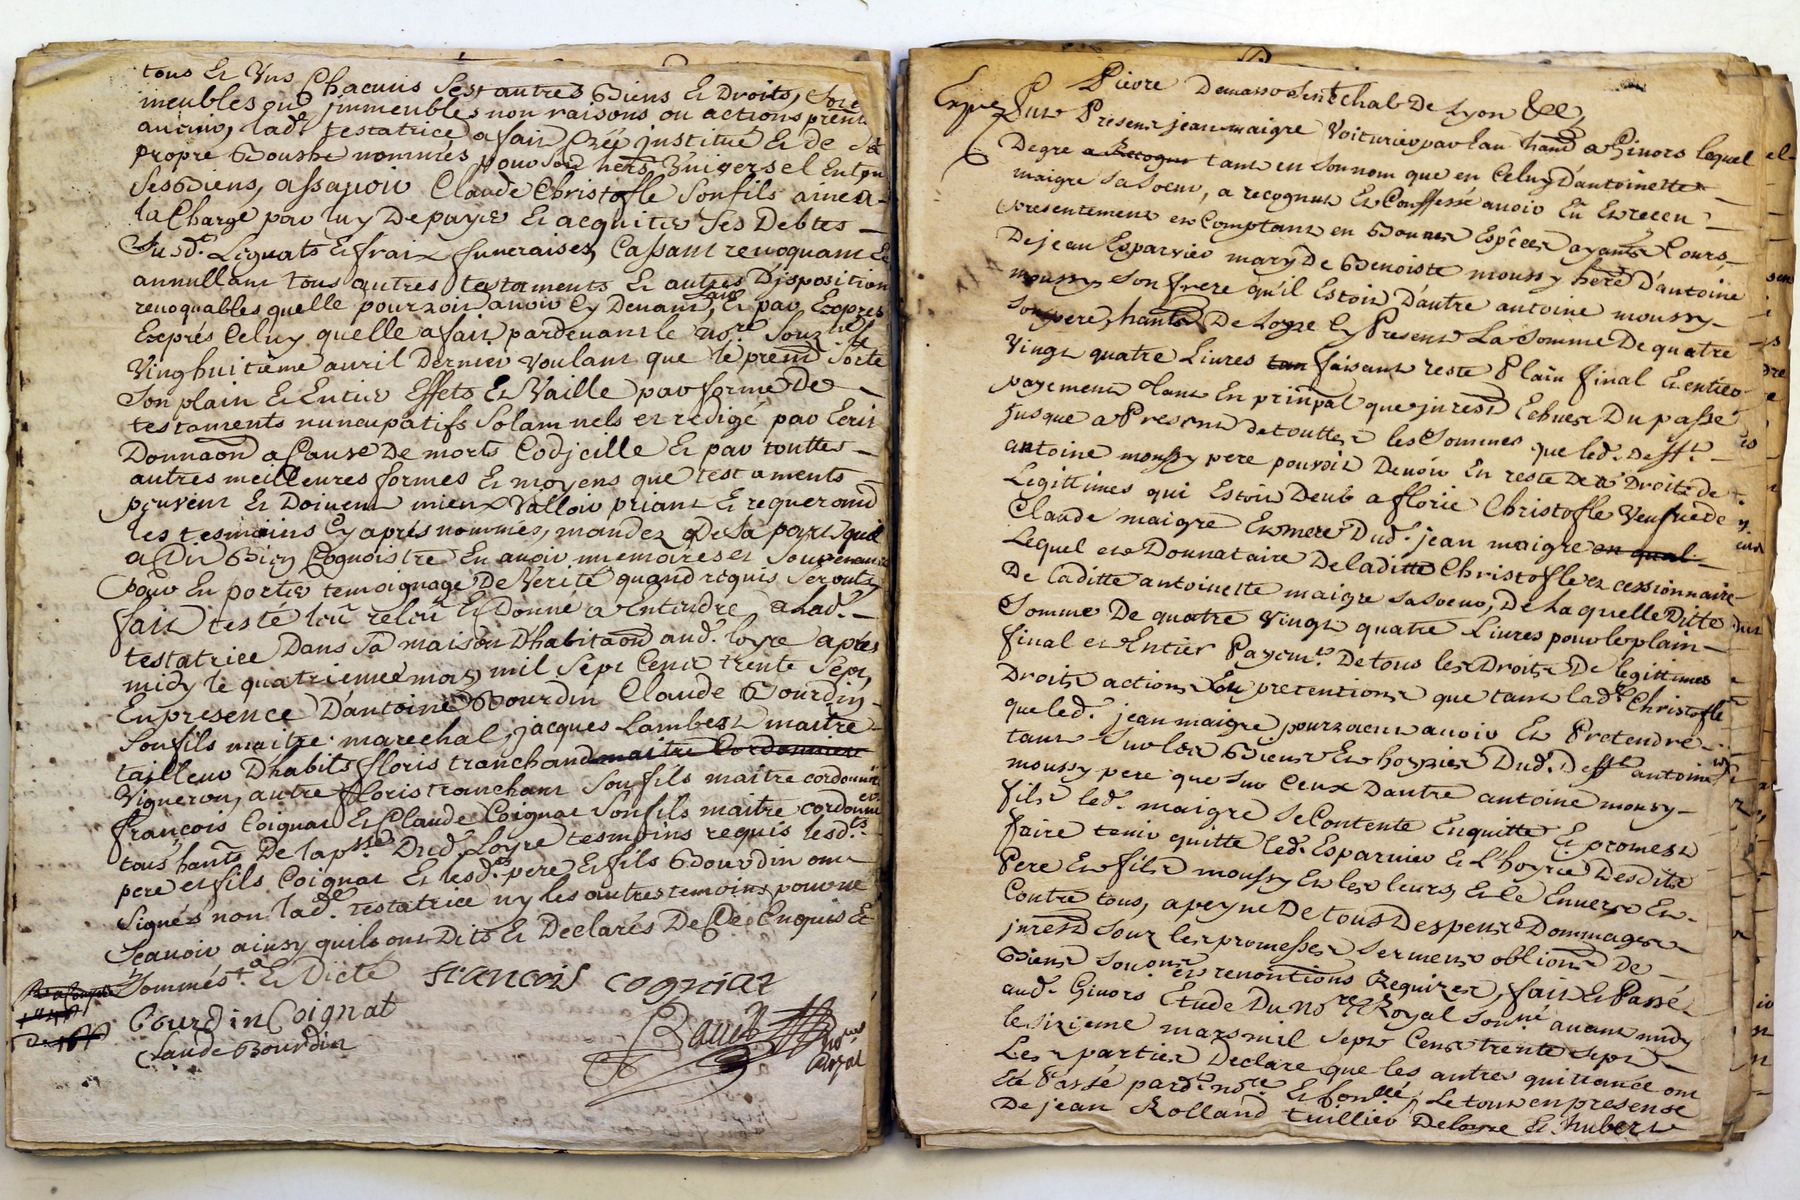 tous Et Uns Chacuns Ses autres Biens Et Droits, Soit
meubles ou jmmeubles non raisons ou actions prent
aucuns, lade testatrice a fait Créé jnstitué Et de Sa
propre Bouche nommés pour son hers Vniversel En tous
Ses Biens, assavoir Claude Christofle Son fils ainé a
la Charge par luy De payer Et acquiter Ses Debtes
Susd. Leguats Et fraix funeraires, Cassant revoquant Et
annullant tous autres testaments Et autres Disposition
revoquables quelle pourroit avoir Cy Devant faits, Et par Exprés
Exprés Celuy quelle a fait pardevant le nore. Souzné le
Vinghuitième avril Dernier voulant que le preñt Sorte
Son plain Et Entier Effets Et Vaille par forme De
testaments nuncupatifs Solamnels et redigé par Ecrit
Donnaon a Cause De morts Codjcille Et par touttes
autres meilleures formes Et moyens que testaments
peuvent Et Doivent mieux Valloir priant Et requerand
les tesmoins Cy aprés nommés, mandez De Sa part quil
a Dit Bien Cognoistre En avoir memoires et Souvenance
pour En porter temoignage De Verité quand requis Seronts,
fait testé leu releu Et Donné a Entendre a Lad.
testatrice Dans Sa maison D'habitaon aud. loyre aprés
midy le quatrieme mars mil Sept Cent trente Sept,
En presence D'antoine Bourdin Claude Bourdin
Son fils maitre marechal jacques Lambert maitre
tailleur D'habits floris tranchand maitre Cordonnier
Vigneron, autre floris tranchant Son fils maitre cordonnier
françois Coignat Et Claude Coignat Son fils maitre cordonniers
tous hants De la psse Dud. Loyre tesmoins requis lesds.
pere et fils Coignat Et lesd. pere Et fils Bourdin ont
Signés non lade. testatrice ny les autres temoins pour ne
Scavoir ainsy quils ont Dits Et Declarés De Ce Enquis Et
Sommés Et Dicté francois cogniat
Bourdin Coignat
Claude Bourdin
nore
Royal
Pierre Demasso Senechal De Lyon &&,
Expé Fut Present jean maigre Voiturier par Eau hant a Givors lequel
De gre a Recognu tant en Son nom que en Celuy D'antoinette
maigre Sa Soeur, a recognut Et Confessé avoir Eu Et receu
presentement en Comptant en Bonnes Espêces ayants Cours,
De jean Esparvier mary De Benoiste moussy here D'antoine
moussy Son frere qu'il Estoit D'autre antoine moussy
Son pere, hants De Loyre Cy Present La Somme De quatre
Vingt quatre Livres tan faisant reste Plain final Et entier
payement tant En prinpal que jnrest Echues Du passé
jusque a Present de touttes les Sommes que led. Defft.
antoine moussy pere pouvoit Devoir En reste Des Droits de
Legittimes qui Estoit Deub a florie Christofle Veufve de
Claude maigre Et mere Dud. jean maigre en qual
Lequel est Donnataire De laditte Christofle et cessionnaire
De laditte antoinette maigre Sa Soeur, De Laquelle Ditte
Somme De quatre Vingt quatre Livres pour le plain
final et Entier Payemt. De tous les Droits De legittimes
Droits actions Et pretentions que tant lade Christofle
que led. jean maigre pourroient avoir Et Pretendre
tant Sur les Biens Et hoyries Dud. Defft antoine
moussy pere que Sur Ceux D'autre antoine moussy
fils led. maigre Se Contente Enquitte Et promest
faire tenir quitte led. Esparvier Et L'hoyrie Desdits
Pere Et fils moussy Et les leurs Et le Envers Et
Contre tous, a peyne De tous Despens Dommages
jnrest Sour les promesses Serment obliõns De
Biens Soũons et renontions Requizes, fait Et Passé
aud. Givors Etude Du Nore Royal Sonné avant midy
le Sizieme mars mil Sept Cent trente Sept
Les parties Declare que les autres quittance ont
Eté Passé pardt. nore Et Conllé, Le tout en presense
De jean Rolland tuillier De loyre Et hubert